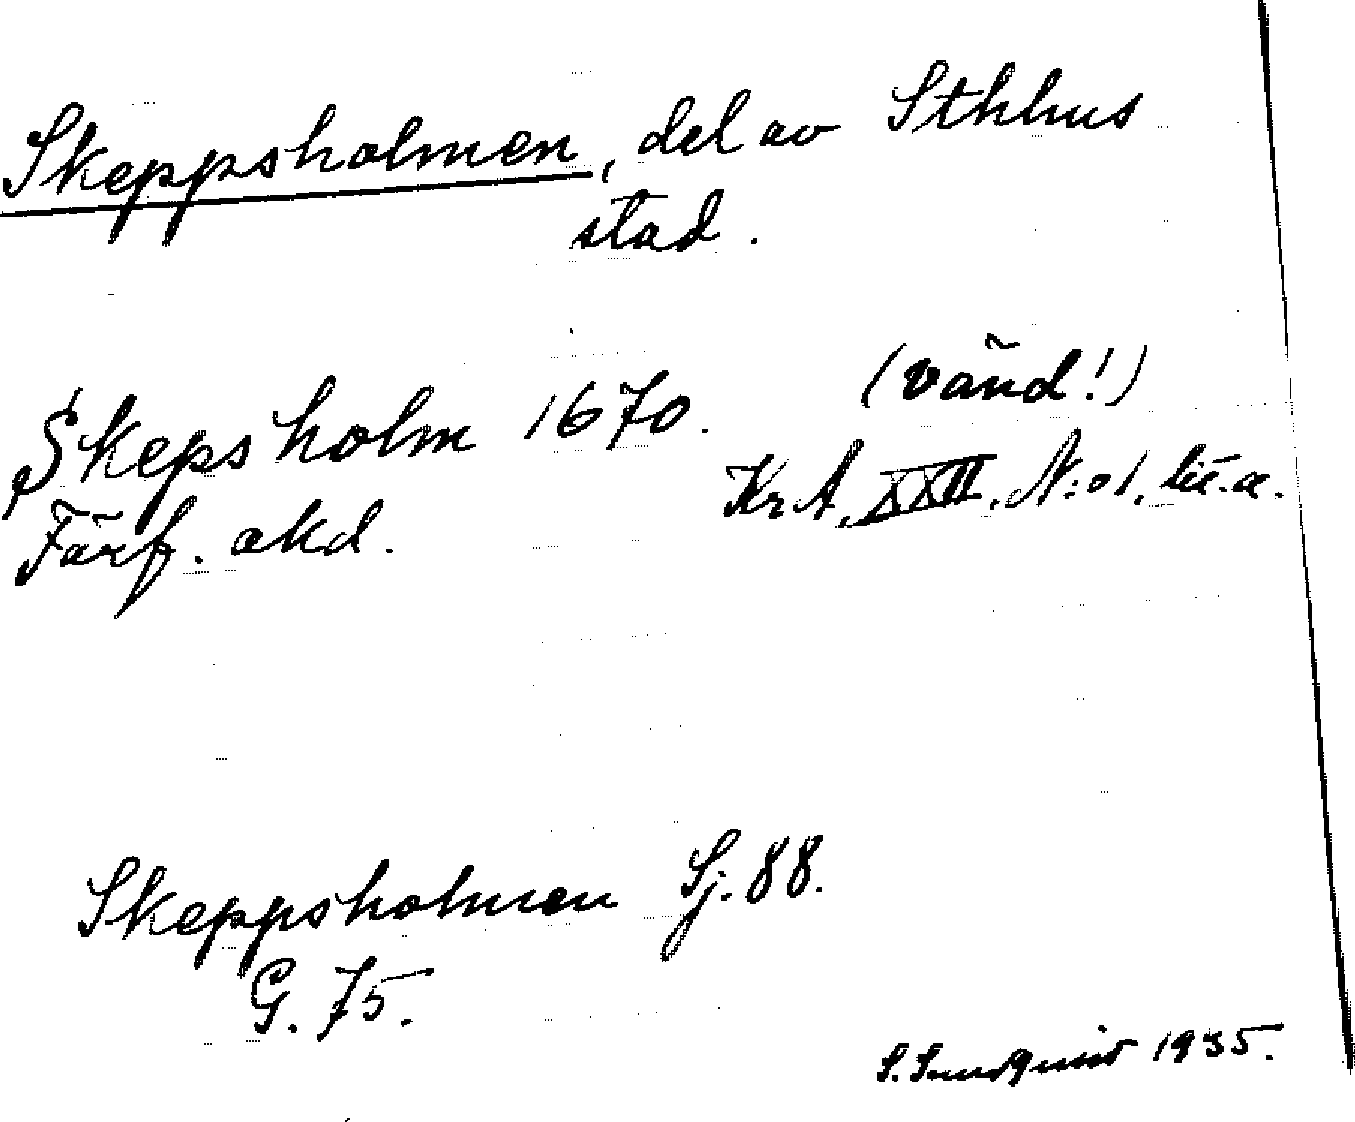 Skeppsholmen, del av Sthlms
stad.
(vänd!)
Skepsholm 1670.
KrA, XXII, N:o 1, lit. a.
Färf. akd.
Skeppsholmen Sj. 88.
G. 75.
S. Sundquist 1935.